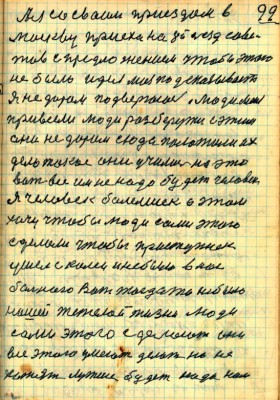 99
Мы со своим приездом в
москву приехал на 26 сезд сове
тов с предложением чтобы этого
не было идея моя подсказывать
Я не даром подвергаюсь. Люди мои
привели люди разберути с этим
они не даром сюда положили их
дело такое они учились на это
вот все им не надо будет человек
Я человек болеющий о этом
хочу чтобы люди сами этого
сделали чтобы преступник
ушел с колеи и небыло в нас
больного Вот тогда то небыло
нашей тяжелой жизни Люди
сами этого сделают они
все этого умеют делать но не
хотят лучше будет когда нам